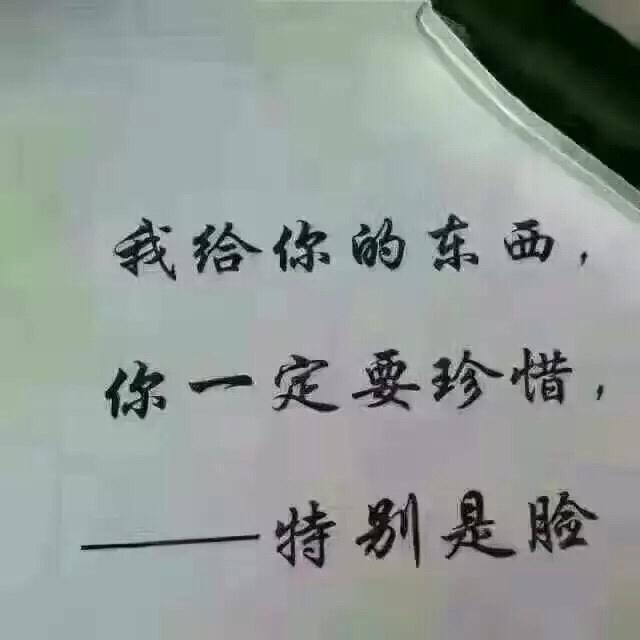 我给你的东西，
你一定要珍惜，
——特别是脸